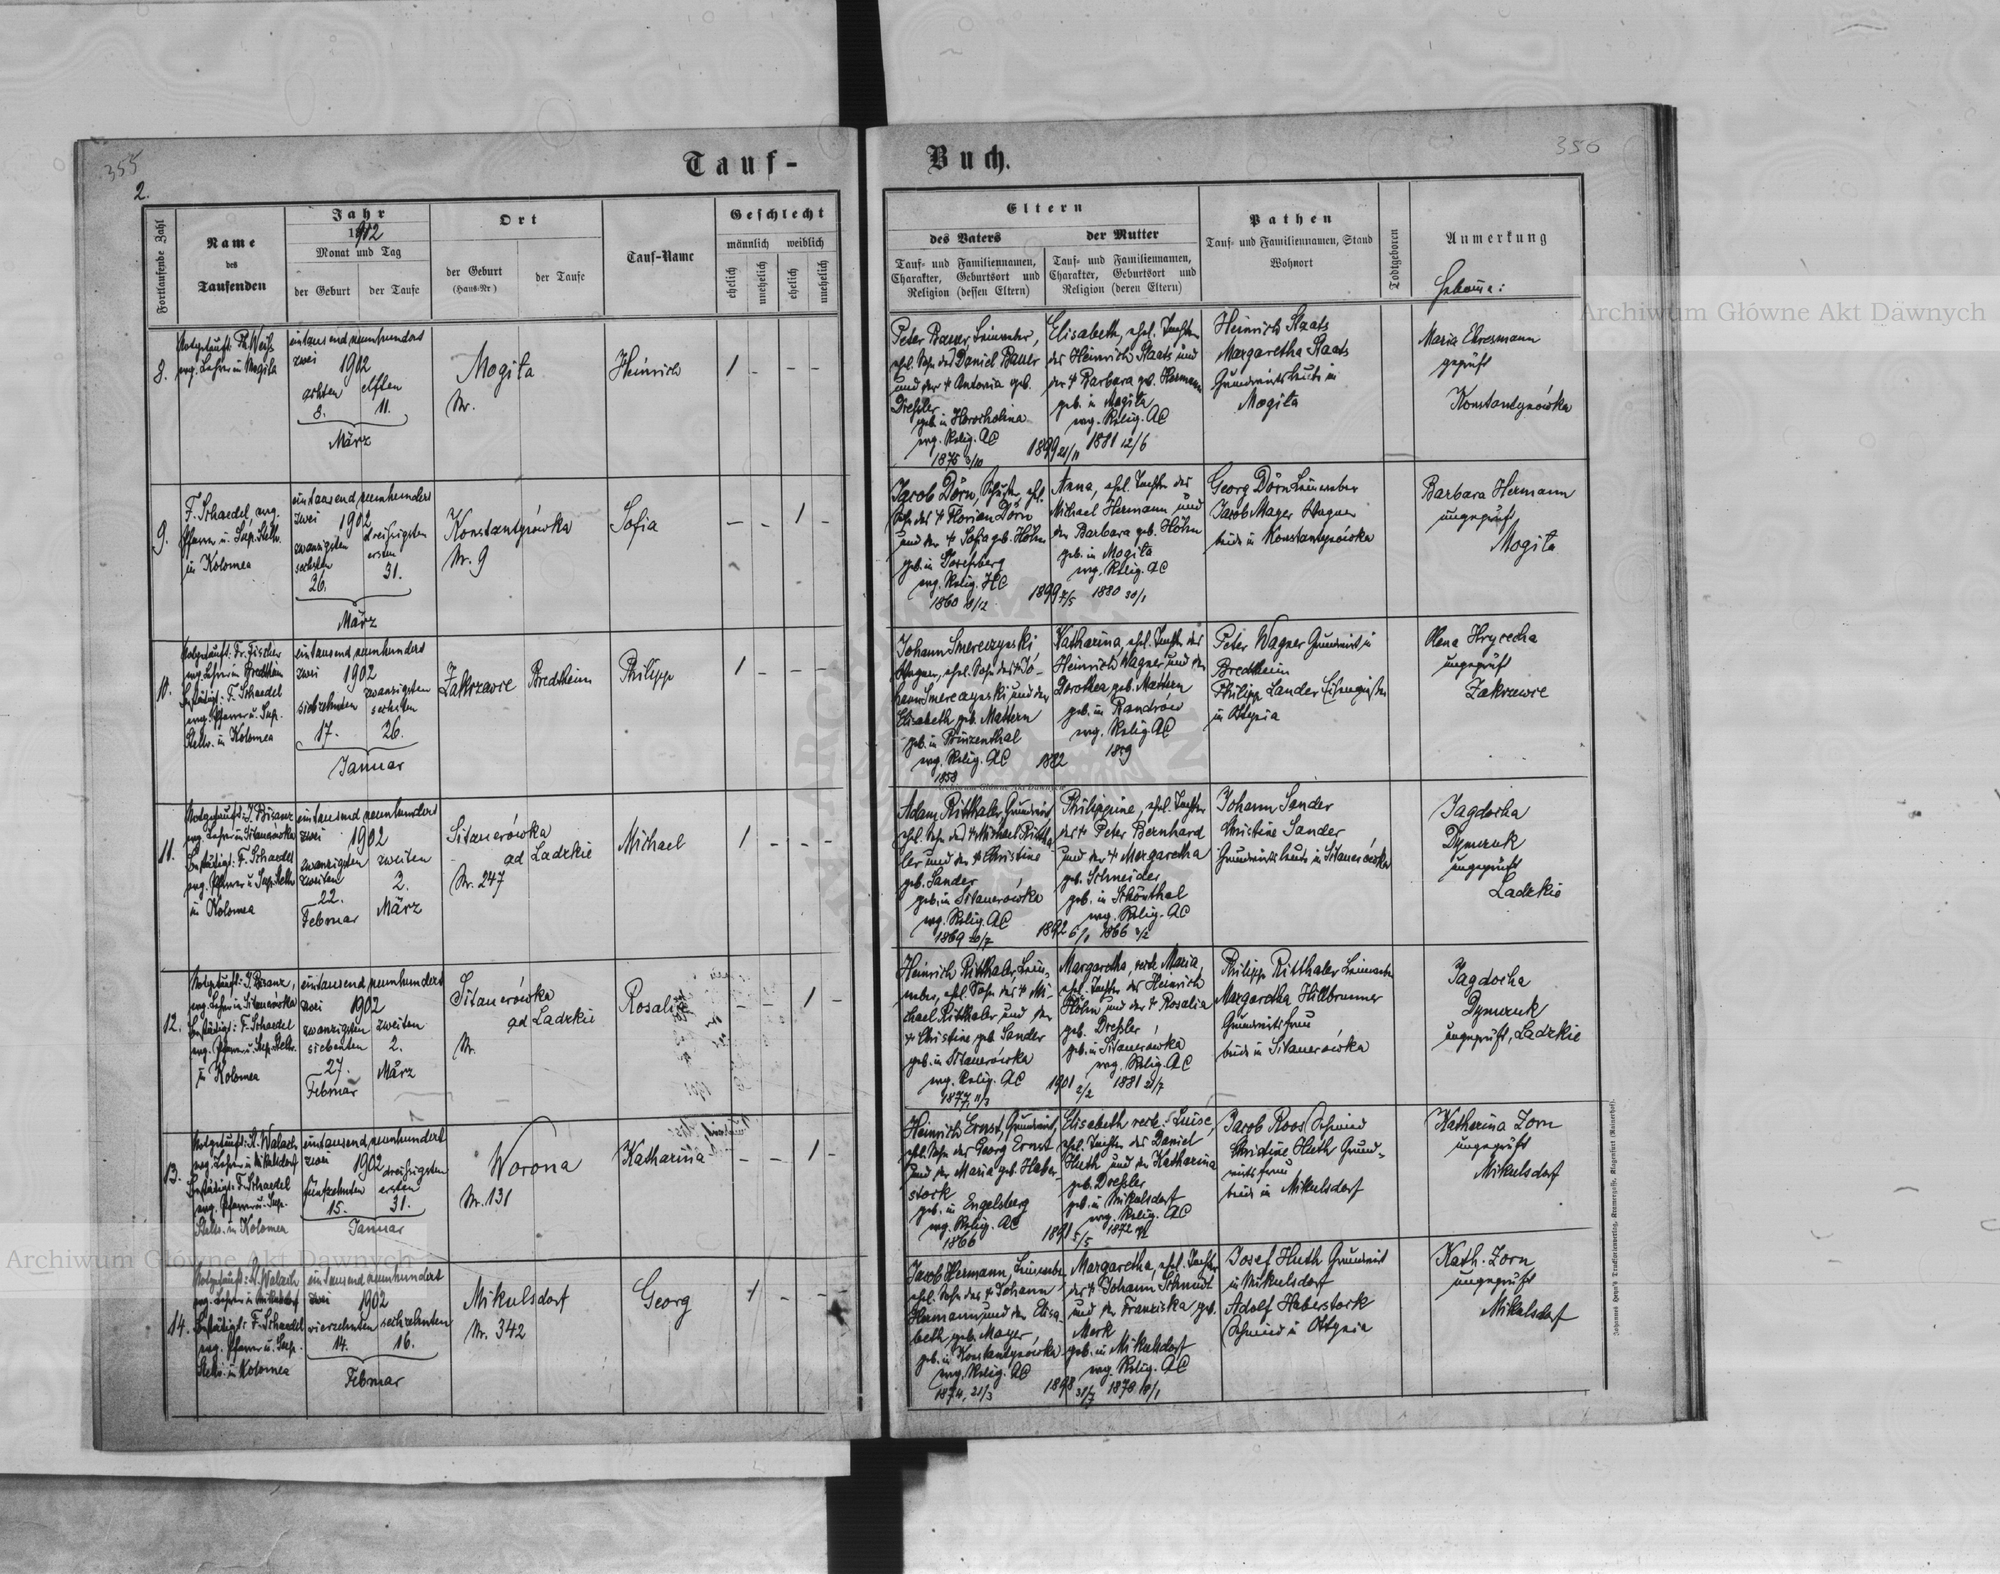 355
2.
Tauf-
Buch.
356
Fortlaufende Zahl
Name
des
Taufenden
Jahr
1902
Monat und Tag
der Geburt
der Taufe
Ort
der Geburt
(Haus-Nr)
der Taufe
Tauf-Name
Geschlecht
männlich
weiblich
ehelich
unehelich
ehelich
unehelich
Eltern
des Vaters
Tauf- und Familiennamen,
Charakter, Geburtsort und
Religion (dessen Eltern)
der Mutter
Tauf- und Familiennamen,
Charakter, Geburtsort und
Religion (deren Eltern)
Pathen
Tauf- und Familiennamen, Stand
Wohnort
Todtgeboren
Anmerkung
8.
Notgetauft: Ph. Weiß
evg. Lehrer in Mogila
eintausend neunhundert
zwei 1902
achten elften
8. 11.
März
Mogila
Nr.
Heinrich
1 - - -
Peter Bauer, Leinweber,
ehel. Sohn des Daniel Bauer
und der † Antonia geb.
Dreßler
geb. in Horocholina
evg. Relig. AC
1875 3/10
1899 21/11
Elisabeth, ehel. Tochter
des Heinrich Staats und
der † Barbara geb. Hermann
geb. in Mogila
evg. Relig. AC
1881 12/6
Heinrich Staats
Margaretha Staats
Grundwirtsleute in
Mogila
Maria Ehresmann
geprüft
Konstantynówka
9.
F. Schaedel, evg.
Pfarrer u. Sup. Stellv.
in Kolomea
eintausend neunhundert
zwei 1902
zwanzigsten dreißigsten
sechsten ersten
26. 31.
März
Konstantynówka
Nr. 9
Sofia
- - 1 -
Jacob Dörn, Schuster, ehel.
Sohn des † Florian Dörn
und der † Sofia geb. Höhn
geb. in Josefsberg
evg. Relig. HC
1860 18/12
1899 7/5
Anna, ehel. Tochter des
Michael Hermann und
der Barbara geb. Höhn
geb. in Mogila
evg. Relig. AC
1880 30/1
Georg Dörn Leinweber
Jacob Mayer Wagner
beide in Konstantynówka
Barbara Hermann
ungeprüft
Mogila
10.
Notgetauft: Fr. Fischer
evg. Lehrer in Bredtheim
Bestätigt: F. Schaedel
evg. Pfarrer u. Sup.
Stellv. in Kolomea
eintausend neunhundert
zwei 1902
siebzehnten zwanzigsten
sechsten
17. 26.
Januar
Zakrzewce
Bredtheim
Philipp
1 - - -
Johann Smereczynski,
Wagner, ehel. Sohn des † Jo-
hann Smereczynski und der
Elisabeth geb. Mattern
geb. in Prinzenthal
evg. Relig. AC
1858
1882
Katharina, ehel. Tochter des
Heinrich Wagner und der
Dorothea geb. Mattern
geb. in Kandrów
evg. Relig. AC
1859
Peter Wagner Grundwirt in
Bredtheim
Philipp Lander Eisengießer
in Ottynia
Olena Hrycecha
ungeprüft
Zakrzewce
11.
Notgetauft: J. Bisanz
evg. Lehrer in Sitauerówka
Bestätigt: F. Schaedel
evg. Pfarrer u. Sup. Stellv.
in Kolomea
eintausend neunhundert
zwei 1902
zwanzigsten zweiten
zweiten 2.
22. März
Februar
Sitauerówka
ad Ladzkie
Nr. 247
Michael
1 - - -
Adam Ritthaler, Grundwirt
ehel. Sohn des † Michael Rittha-
ler und der † Christine
geb. Sander
geb. in Sitauerówka
evg. Relig. AC
1869 20/7
1892 6/1
Philippine, ehel. Tochter
des † Peter Bernhard
und der † Margaretha
geb. Schneider
geb. in Schönthal
evg. Relig. AC
1866 3/2
Johann Sander
Christine Sander
Grundwirtsleute in Sitauerówka
Jagdocha
Dymczuk
ungeprüft
Ladzkie
12.
Notgetauft: J. Bisanz,
evg. Lehrer in Sitauerówka
Bestätigt: F. Schaedel
evg. Pfarrer u. Sup. Stellv.
in Kolomea
eintausend neunhundert
zwei 1902
zwanzigsten zweiten
siebenten 2.
27. März
Februar
Sitauerówka
ad Ladzkie
Nr.
Rosalie
- - 1 -
Heinrich Ritthaler, Lein-
weber, ehel. Sohn des † Mi-
chael Ritthaler und der
† Christine geb. Sander
geb. in Sitauerówka
evg. Relig. AC
1877 11/3
1901 2/2
Margaretha, recte Maria,
ehel. Tochter des Heinrich
Höhn und der † Rosalia
geb. Dreßler
geb. in Sitauerówka
evg. Relig. AC
1881 21/7
Philipp Ritthaler Leinweber
Margaretha Hillbrunner
Grundwirtsfrau
beide in Sitauerówka
Jagdocha
Dymczuk
ungeprüft, Ladzkie
13.
Notgetauft: A. Walach
evg. Lehrer in Mikulsdorf
Bestätigt: F. Schaedel
evg. Pfarrer u. Sup.
Stellv. in Kolomea
eintausend neunhundert
zwei 1902
fünfzehnten dreißigsten
ersten
15. 31.
Januar
Worona
Nr. 131
Katharina
- - 1 -
Heinrich Ernst, Grundwirt,
ehel. Sohn des Georg Ernst
und der Maria geb. Haber-
stock
geb. in Engelsberg
evg. Relig. AC
1866
1891 5/5
Elisabeth recte: Luise,
ehel. Tochter des Daniel
Huth und der Katharina
geb. Dreßler
geb. in Mikulsdorf
evg. Relig. AC
1872
Jacob Roos Schmied
Christine Huth Grund-
wirtsfrau
beide in Mikulsdorf
Katharina Zorn
ungeprüft
Mikulsdorf
14.
Notgetauft: A. Walach
evg. Lehrer in Mikulsdorf
Bestätigt: F. Schaedel
evg. Pfarrer u. Sup.
Stellv. in Kolomea
eintausend neunhundert
zwei 1902
vierzehnten sechzehnten
14. 16.
Februar
Mikulsdorf
Nr. 342
Georg
1 - - -
Jacob Hermann, Leinweber
ehel. Sohn des † Johann
Hermann und der Elisa
beth geb. Mayer,
geb. in Konstantynówka
evg. Relig. AC
1874, 21/3
1898 31/7
Margaretha, ehel. Tochter
des † Johann Schmidt
und der Franziska geb.
Merk
geb. in Mikulsdorf
evg. Relig. AC
1878 18/1
Josef Huth Grundwirt
in Mikulsdorf
Adolf Haberstock
Schmied in Ottynia
Kath. Zorn
ungeprüft
Mikulsdorf
Archiwum Główne Akt Dawnych
Archiwum Główne Akt Dawnych
Archiwum Główne Akt Dawnych